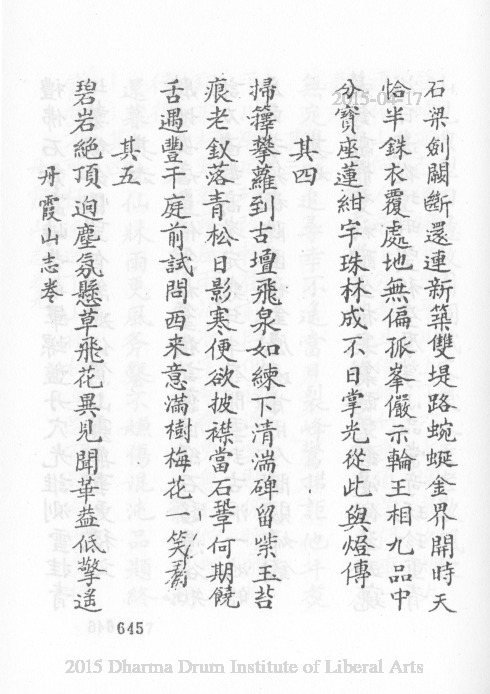 石梁劍閣斷還連新築雙堤路蜿蜒金界開時天
恰半銖衣覆處地無偏孤峯儼示輪王相九品中
分寶座蓮紺宇珠林成不日掌光從此與燈傳
其四
掃籜攀蘿到古壇飛泉如練下清湍碑留紫玉苔
痕老釵落青松日影寒便欲披襟當石鞏何期饒
舌遇豐干庭前試問西来意滿樹梅花一笑看
其五
碧岩絶頂逈塵氛懸草飛花異見聞華葢低擎遙
丹霞山志卷
645
2015-04-17
2015 Dharma Drum Institute of Liberal Arts